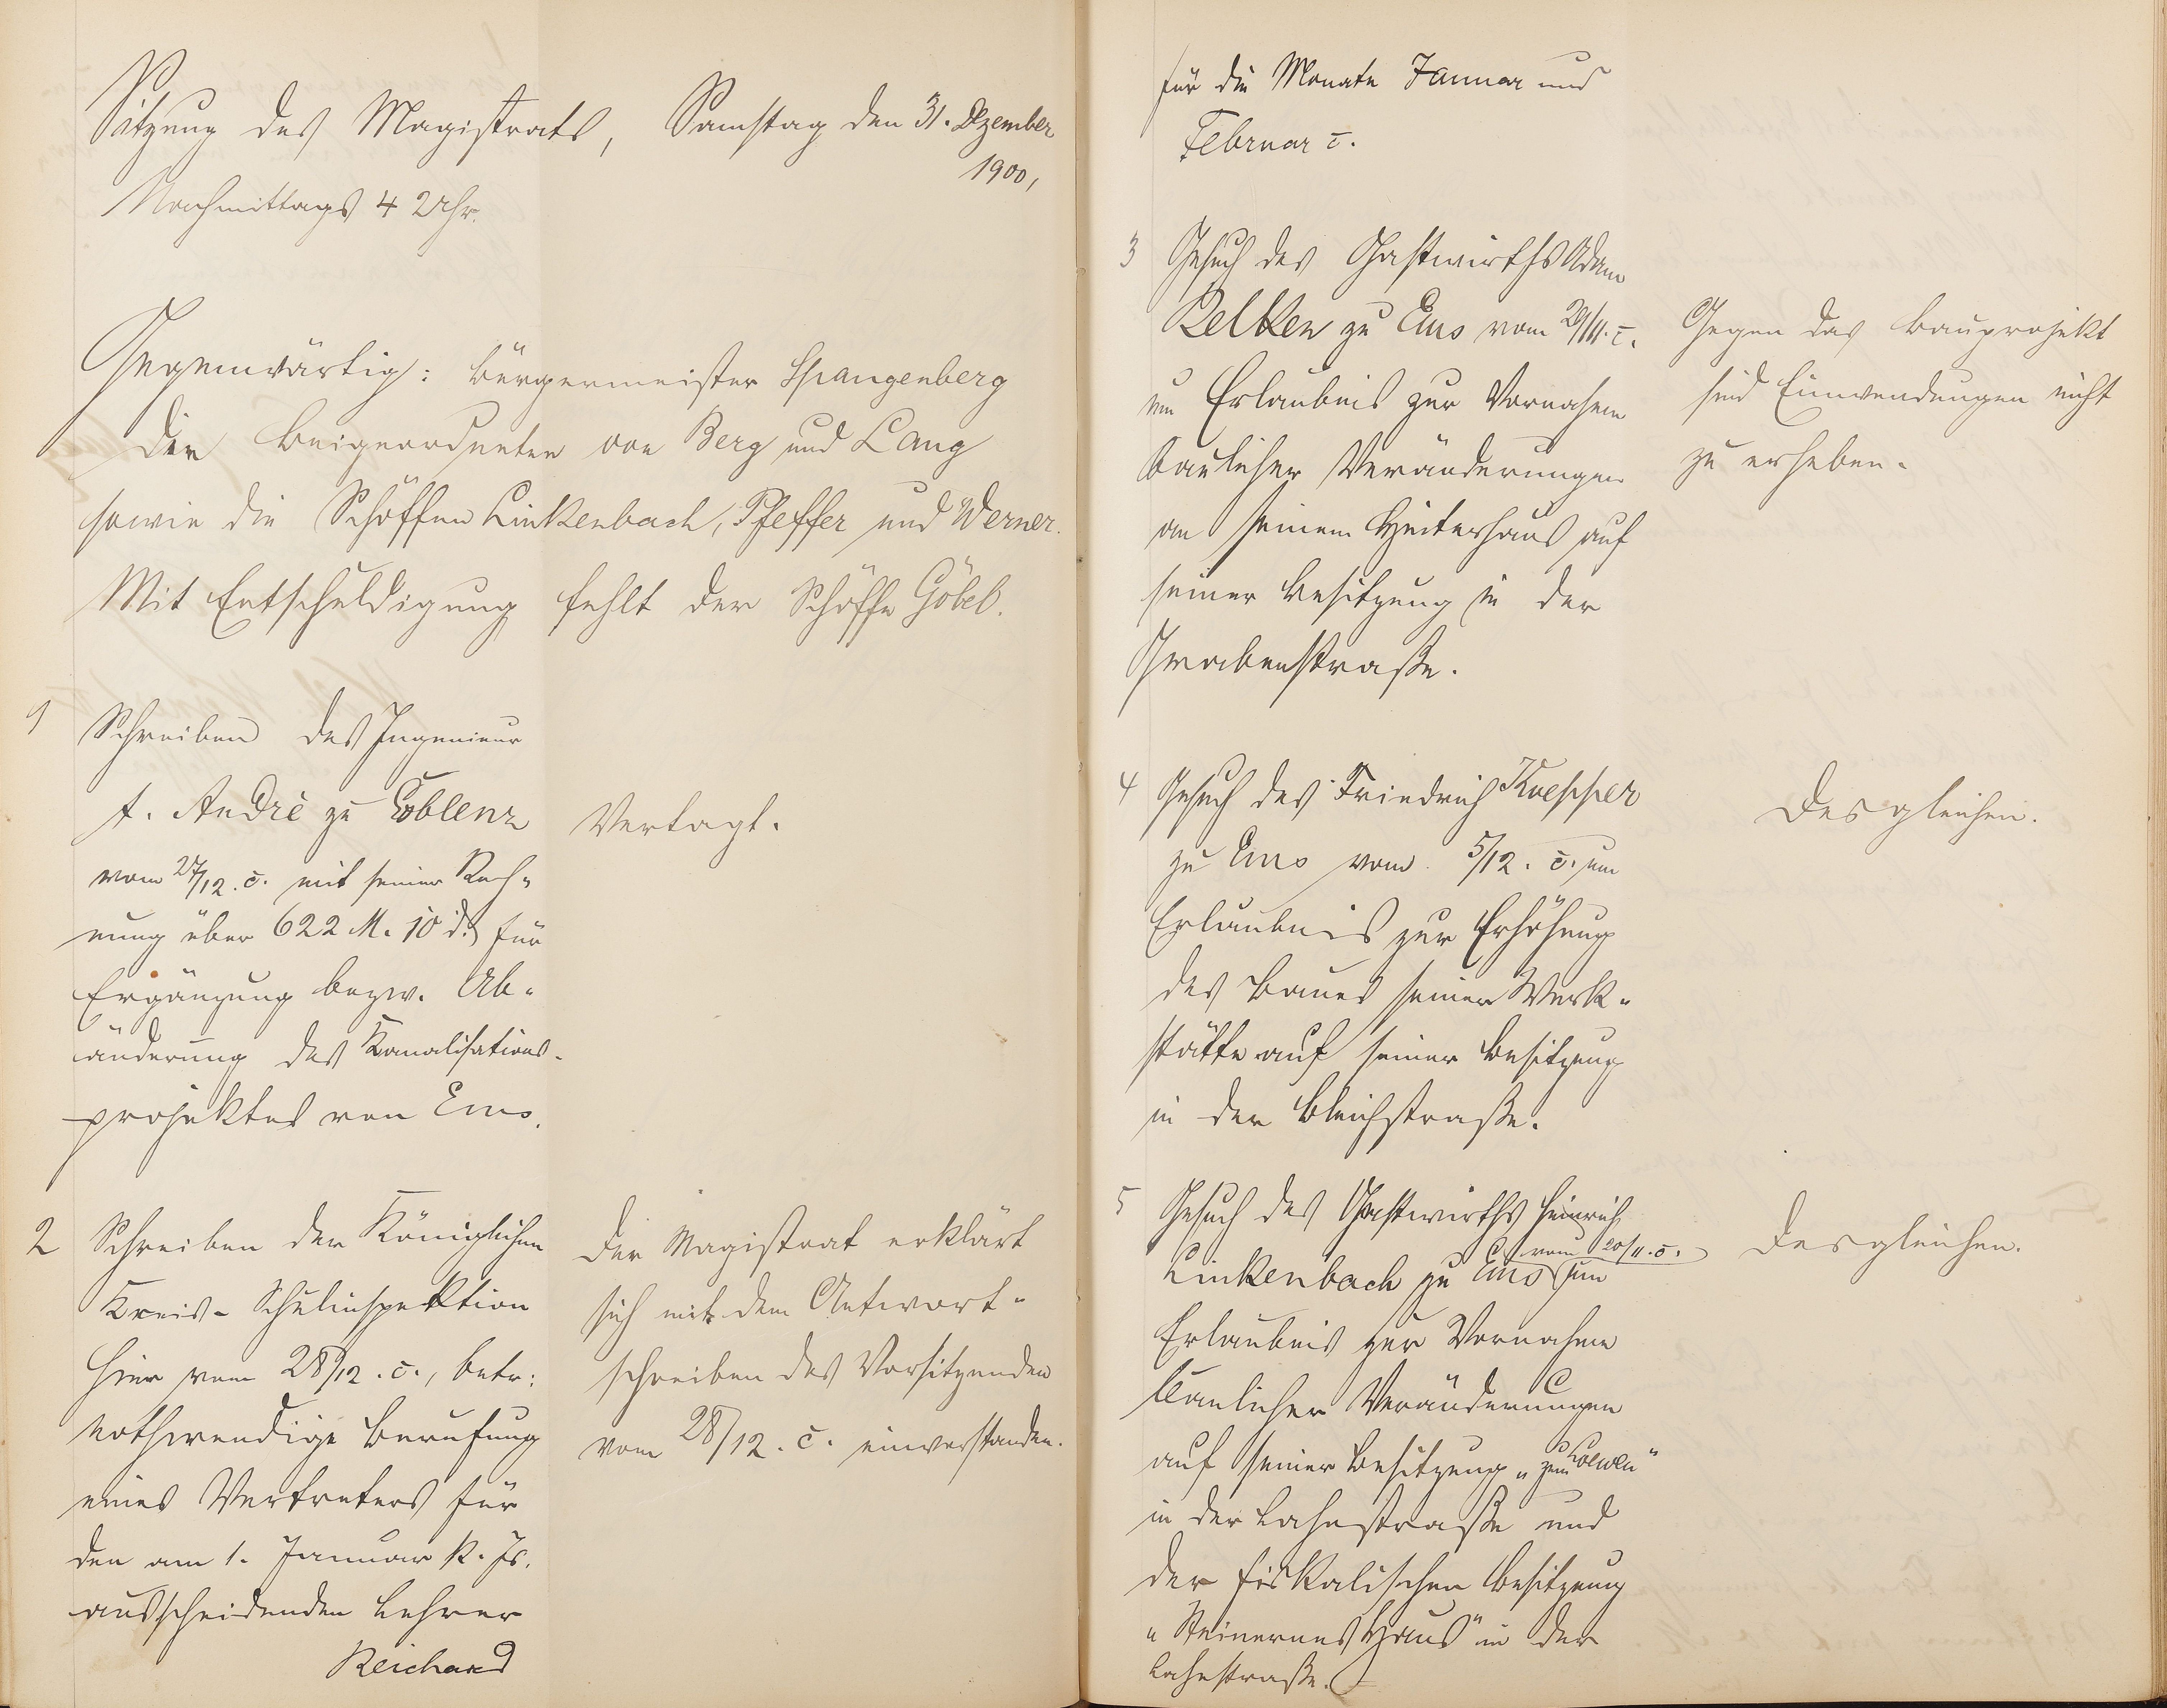 Sitzung des Magistrats, Samstag den 31. Dezember
1900,
Nachmittags 4 Uhr.
Gegenwärtig: Bürgermeister Spangenberg
Die Beigeordneten von Berg und Lang
sowie die Schöffen Linkenbach, Pfeffer und Werner.
Mit Entschuldigung fehlt der Schöffe Göbel.
1
Schreiben des Ingenieur
A. André zu Coblenz
vom 27/12. c. mit seiner Rech-
nung über 622 M. 10 d. für
Ergänzung bezw. Ab-
änderung des Kanalisations-
projektes von Ems.
Vertagt.
2
Schreiben der Königlichen
Kreis-Schulinspektion
hier vom 28/12. c., betr:
nothwendige Berufung
eines Vertreters für
den am 1. Januar k. Js.
ausscheidenden Lehrer
Reichard
Der Magistrat erklärt
sich mit dem Antwort-
schreiben des Vorsitzenden
vom 28/12. c. einverstanden.
für die Monate Januar und
Februar c.
3
Gesuch des Gastwirths Adam
Relken zu Ems vom 29/11. c.
um Erlaubnis zur Vornahme
baulicher Veränderungen
an seinem Hinterhaus auf
seiner Besitzung in der
Grabenstraße.
Gegen das Bauprojekt
sind Einwendungen nicht
zu erheben.
4
Gesuch des Friedrich Kuepper
zu Ems vom 5/12. c. um
Erlaubnis zur Erhöhung
des Baues seiner Werk-
stätte auf seiner Besitzung
in der Bleichstraße.
Desgleichen.
5
Gesuch des Gastwirths Heinrich
Linkenbach zu Ems vom 20/11. c. um
Erlaubnis zur Vornahme
baulicher Veränderungen
auf seiner Besitzung „zum Loewen"
in der Lahnstraße und
der fiskalischen Besitzung
„Steinernes Haus" in der
Lahnstraße.
Desgleichen.